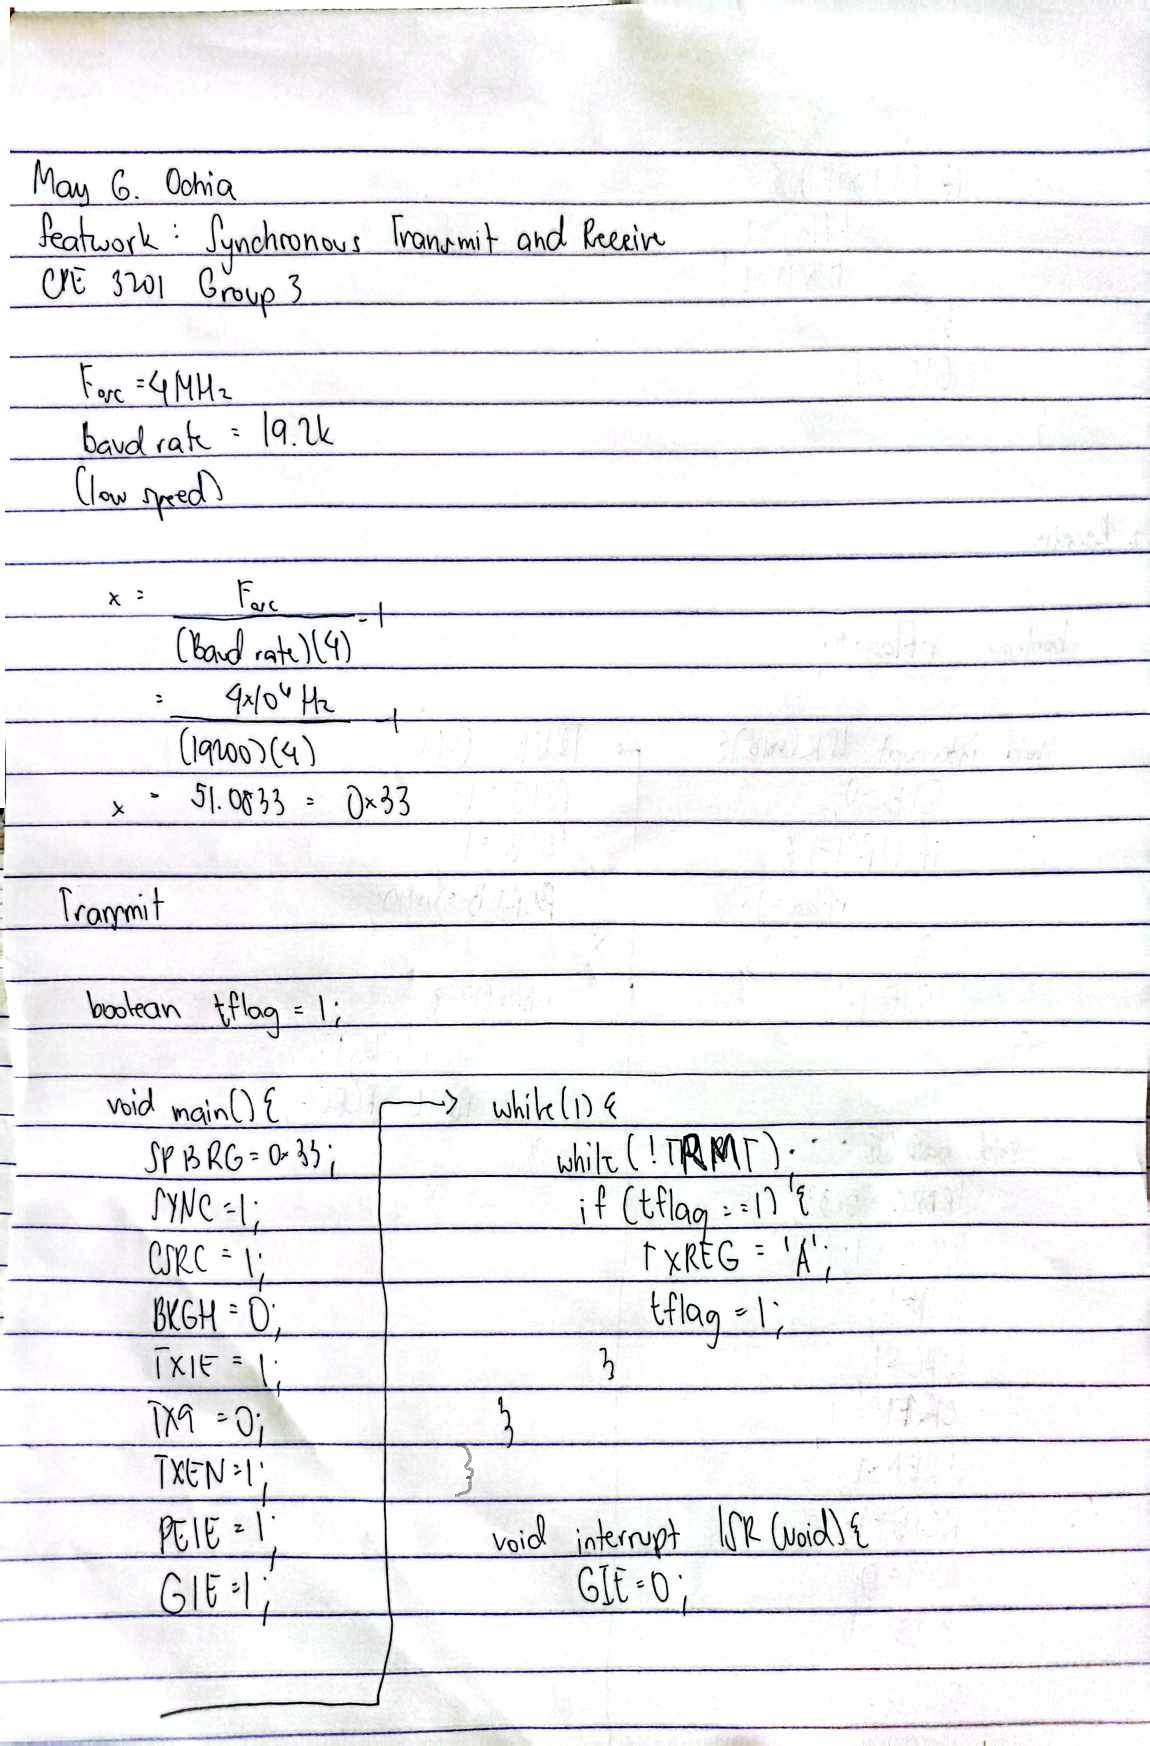 May G. Ochia
Seatwork: Synchronous Transmit and Receive
CPE 3201 Group 3
Fosc = 4MHz
baud rate = 19.2k
(low speed)
x = Fosc / (Baud rate)(4) - 1
= 4x10⁶ Hz / (19200)(4) - 1
x = 51.0833 = 0x33
Transmit
boolean tflag = 1;
void main(){
SPBRG = 0x33;
SYNC = 1;
CSRC = 1;
BRGH = 0;
TXIE = 1;
TX9 = 0;
TXEN = 1;
PEIE = 1;
GIE = 1;
while(1){
while(!TRMT);
if (tflag == 1) {
TXREG = 'A';
tflag = 1;
}
}
}
void interrupt ISR(void){
GIE = 0;